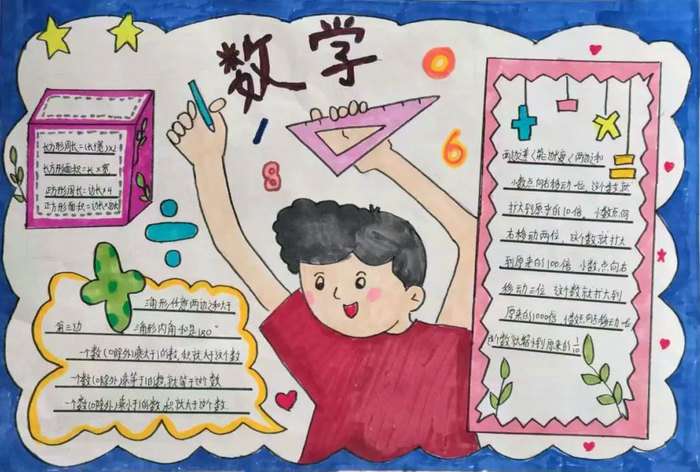 数学
0
1
8
6
长方形周长=(长+宽)×2
长方形面积=长×宽
正方形周长=边长×4
正方形面积=边长×边长
三角形任意两边之和大于
第三边 三角形内角和是180°
一个数(0除外)乘大于1的数,积就大于这个数
一个数(0除外)乘等于1的数,就等于这个数
一个数(0除外)乘小于1的数,积就大于这个数
两边之差<第三边<两边之和
小数点向右移动一位,这个数就
扩大到原来的10倍,小数点向
右移动两位,这个数就扩大
到原来的100倍 小数点向右
移动三位 这个数就扩大到
原来的1000倍,
这个数就缩小到原来的1/10